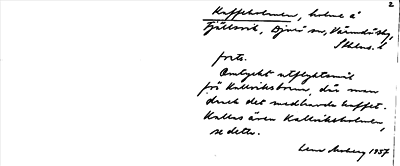 2
Kaffeholmen, holme å
Fjällsvik, Djurö sn, Värmdö skg,
Sthlms. l
forts.
Omtyckt utflyktsmål
från Kallviksbrunn, där man
drack det medhavda kaffet.
Kallas även Kallviksholmen,
se detta.
1957